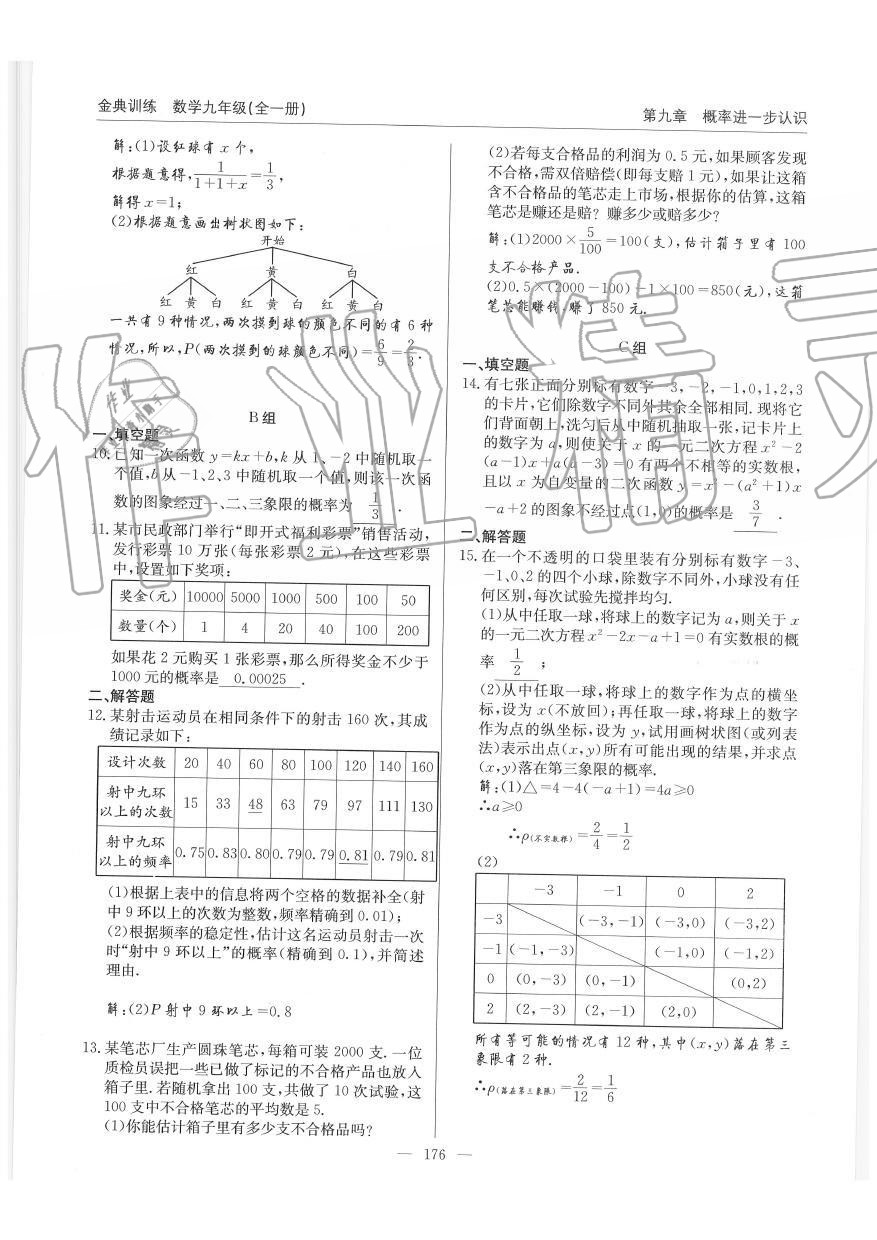 金典训练 数学九年级(全一册)
第九章 概率进一步认识
解:(1)设红球有 x 个,
根据题意得, 1/(1+1+x) = 1/3,
解得 x=1;
(2)根据题意画出树状图如下:
开始
红 黄 白
红 黄 白 红 黄 白 红 黄 白
一共有 9 种情况,两次摸到球的颜色不同的有 6 种
情况,所以,P(两次摸到的球颜色不同)= 6/9 = 2/3.
B 组
一、填空题
10. 已知一次函数 y=kx+b,k 从 1、-2 中随机取一
个值,b 从-1、2、3 中随机取一个值,则该一次函
数的图象经过一、二、三象限的概率为 1/3 .
11. 某市民政部门举行“即开式福利彩票”销售活动,
发行彩票 10 万张(每张彩票 2 元),在这些彩票
中,设置如下奖项:
奖金(元) 10000 5000 1000 500 100 50
数量(个) 1 4 20 40 100 200
如果花 2 元购买 1 张彩票,那么所得奖金不少于
1000 元的概率是 0.00025 .
二、解答题
12. 某射击运动员在相同条件下的射击 160 次,其成
绩记录如下:
设计次数 20 40 60 80 100 120 140 160
射中九环
以上的次数 15 33 48 63 79 97 111 130
射中九环
以上的频率 0.75 0.83 0.80 0.79 0.79 0.81 0.79 0.81
(1)根据上表中的信息将两个空格的数据补全(射
中 9 环以上的次数为整数,频率精确到 0.01);
(2)根据频率的稳定性,估计这名运动员射击一次
时“射中 9 环以上”的概率(精确到 0.1),并简述
理由.
解:(2)P 射中 9 环以上=0.8
13. 某笔芯厂生产圆珠笔芯,每箱可装 2000 支.一位
质检员误把一些已做了标记的不合格产品也放入
箱子里.若随机拿出 100 支,共做了 10 次试验,这
100 支中不合格笔芯的平均数是 5.
(1)你能估计箱子里有多少支不合格品吗?
(2)若每支合格品的利润为 0.5 元,如果顾客发现
不合格,需双倍赔偿(即每支赔 1 元),如果让这箱
含不合格品的笔芯走上市场,根据你的估算,这箱
笔芯是赚还是赔? 赚多少或赔多少?
解:(1)2000× 5/100 =100(支),估计箱子里有 100
支不合格产品.
(2)0.5×(2000-100)-1×100=850(元),这箱
笔芯能赚钱,赚了 850 元.
C 组
一、填空题
14. 有七张正面分别标有数字-3,-2,-1,0,1,2,3
的卡片,它们除数字不同外其余全部相同.现将它
们背面朝上,洗匀后从中随机抽取一张,记卡片上
的数字为 a,则使关于 x 的一元二次方程 x²-2
(a-1)x+a(a-3)=0 有两个不相等的实数根,
且以 x 为自变量的二次函数 y=x²-(a²+1)x
-a+2 的图象不经过点(1,0)的概率是 3/7 .
二、解答题
15. 在一个不透明的口袋里装有分别标有数字-3、
-1、0、2 的四个小球,除数字不同外,小球没有任
何区别,每次试验先搅拌均匀.
(1)从中任取一球,将球上的数字记为 a,则关于 x
的一元二次方程 x²-2x-a+1=0 有实数根的概
率 1/2 ;
(2)从中任取一球,将球上的数字作为点的横坐
标,设为 x(不放回);再任取一球,将球上的数字
作为点的纵坐标,设为 y,试用画树状图(或列表
法)表示出点(x,y)所有可能出现的结果,并求点
(x,y)落在第三象限的概率.
解:(1)△=4-4(-a+1)=4a≥0
∴a≥0
∴P = 2/4 = 1/2
(2)
-3 -1 0 2
-3 (-3,-1) (-3,0) (-3,2)
-1 (-1,-3) (-1,0) (-1,2)
0 (0,-3) (0,-1) (0,2)
2 (2,-3) (2,-1) (2,0)
所有等可能的情况有 12 种,其中(x,y)落在第三
象限有 2 种.
∴P(落在第三象限)= 2/12 = 1/6
— 176 —
作业精灵